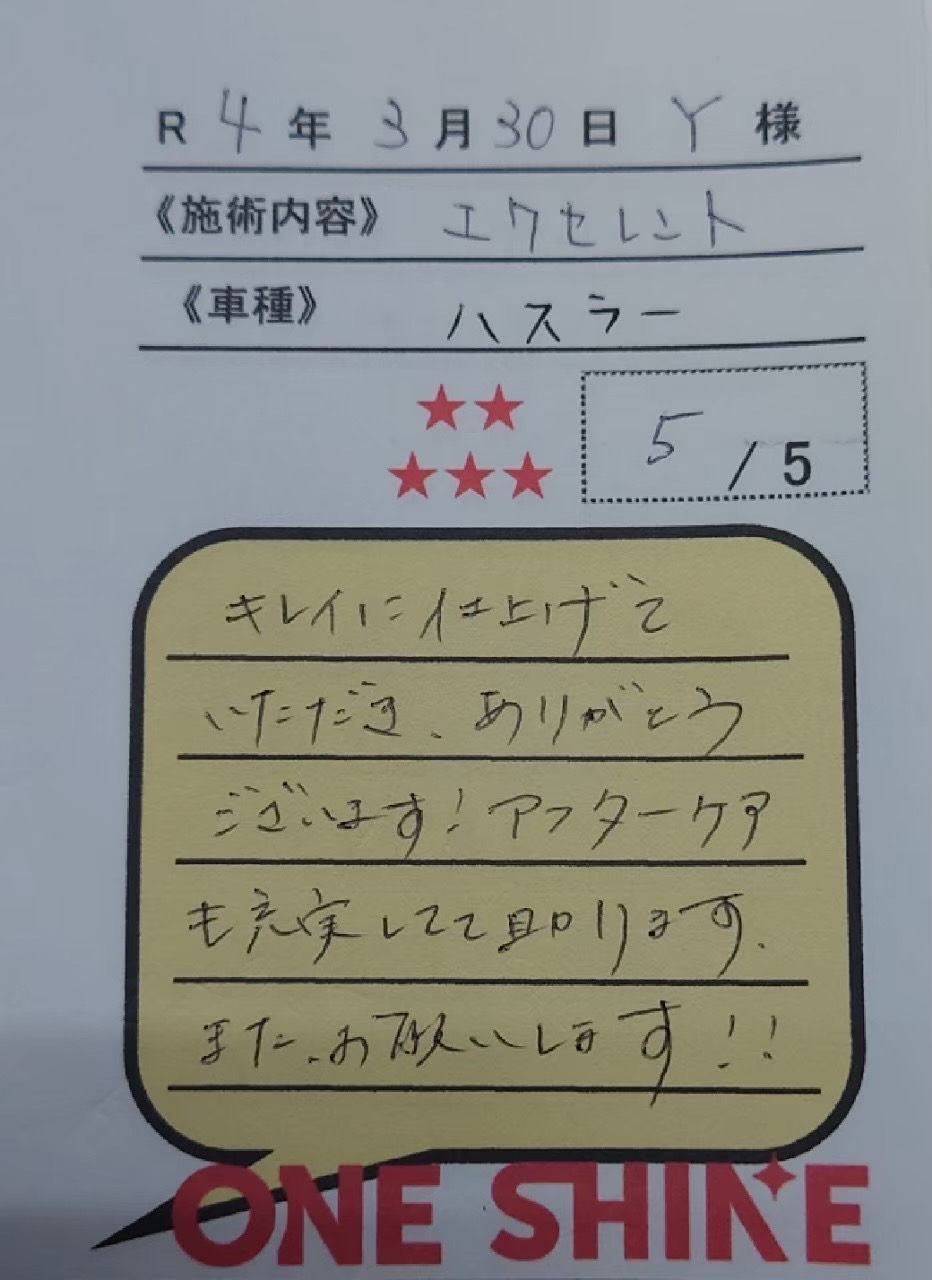 R 4 年 3 月 30 日 Y 様
《施術内容》 エクセレント
《車種》 ハスラー
5 / 5
キレイに仕上げて
いただき、ありがとう
ございます!アフターケア
も充実してて助かります。
また、お願いします!!
ONE SHINE